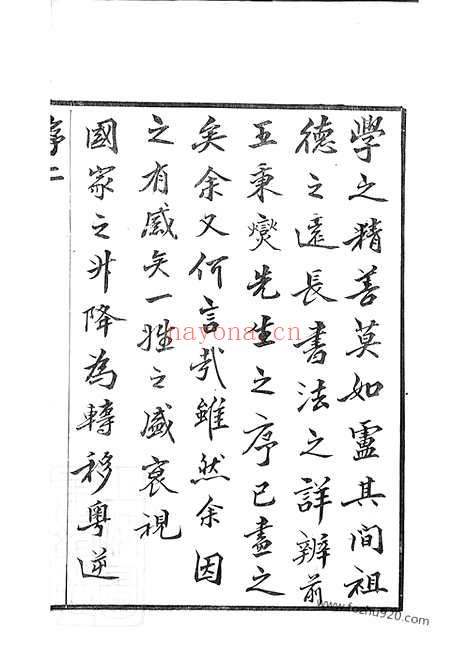 學之精善莫如盧其間祖
德之遠長書法之詳辨前
王秉燮先生之序已盡之
矣余又何言哉雖然余因
之有感矣一姓之盛衰視
國家之升降為轉移粵逆
序二
nayona.cn
www.fozhu920.com